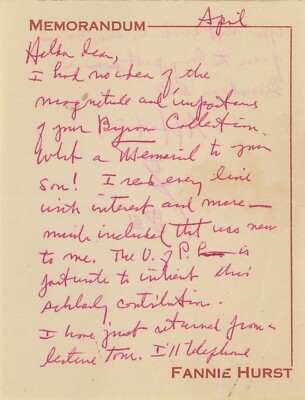 April
MEMORANDUM
Helen dear,
I had no idea of the
magnitude and importance
of your Byron Collection.
What a Memorial to your
son! I read every line
with interest and more —
much included that was new
to me. The U. of P. is
fortunate to inherit this
scholarly contribution.
I have just returned from a
lecture tour. I'll telephone
FANNIE HURST